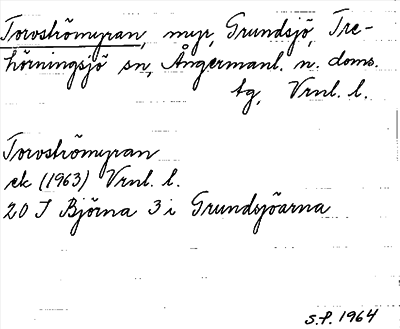 Torvströmyran, myr, Grundsjö, Tre-
hörningsjö sn, Ångermanl. n. doms.
tg, Vrnl. l.
Torvströmyran
ek (1963) Vrnl. l.
20 I Björna 3 i Grundsjöarna
S.P. 1964